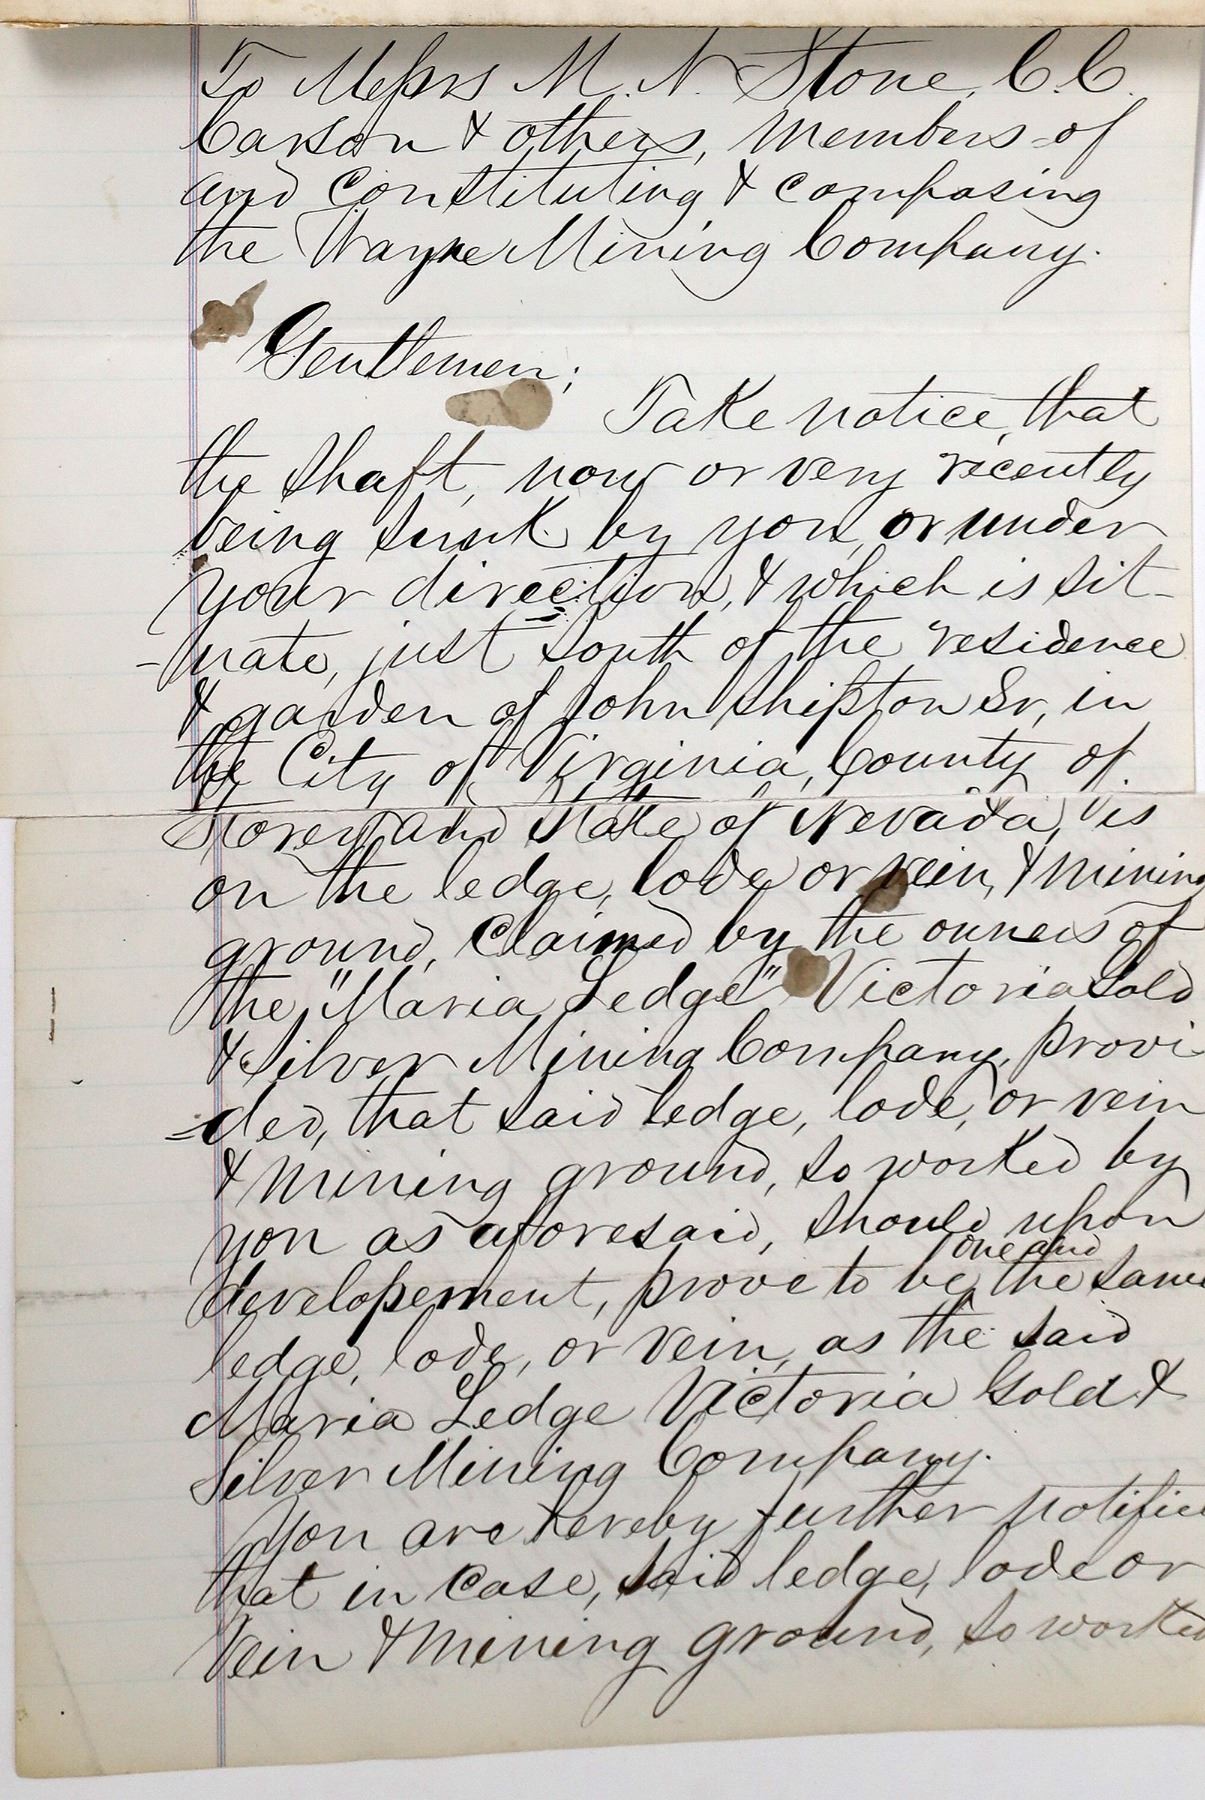 To Messrs M. N. Stone, C. C.
Carson & others, Members of
and Constituting & composing
the Wayne Mining Company.
Gentlemen;
Take notice, that
the Shaft, now or very recently
being sunk by you, or under
your direction, & which is sit-
-uate, just South of the residence
& garden of John Shipton Sr, in
the City of Virginia, County of
Storey and State of Nevada, is
on the ledge, lode or vein, & Mining
ground, Claimed by the owners of
the "Maria Ledge" Victoria Gold
& Silver Mining Company, provi
=ded, that said ledge, lode, or vein
& Mining ground, so worked by
you as aforesaid, should upon
developement, prove to be one and the same
ledge, lode, or vein, as the said
Maria Ledge Victoria Gold &
Silver Mining Company.
You are hereby further notified
that in case, said ledge, lode or
Vein & Mining ground, so worked